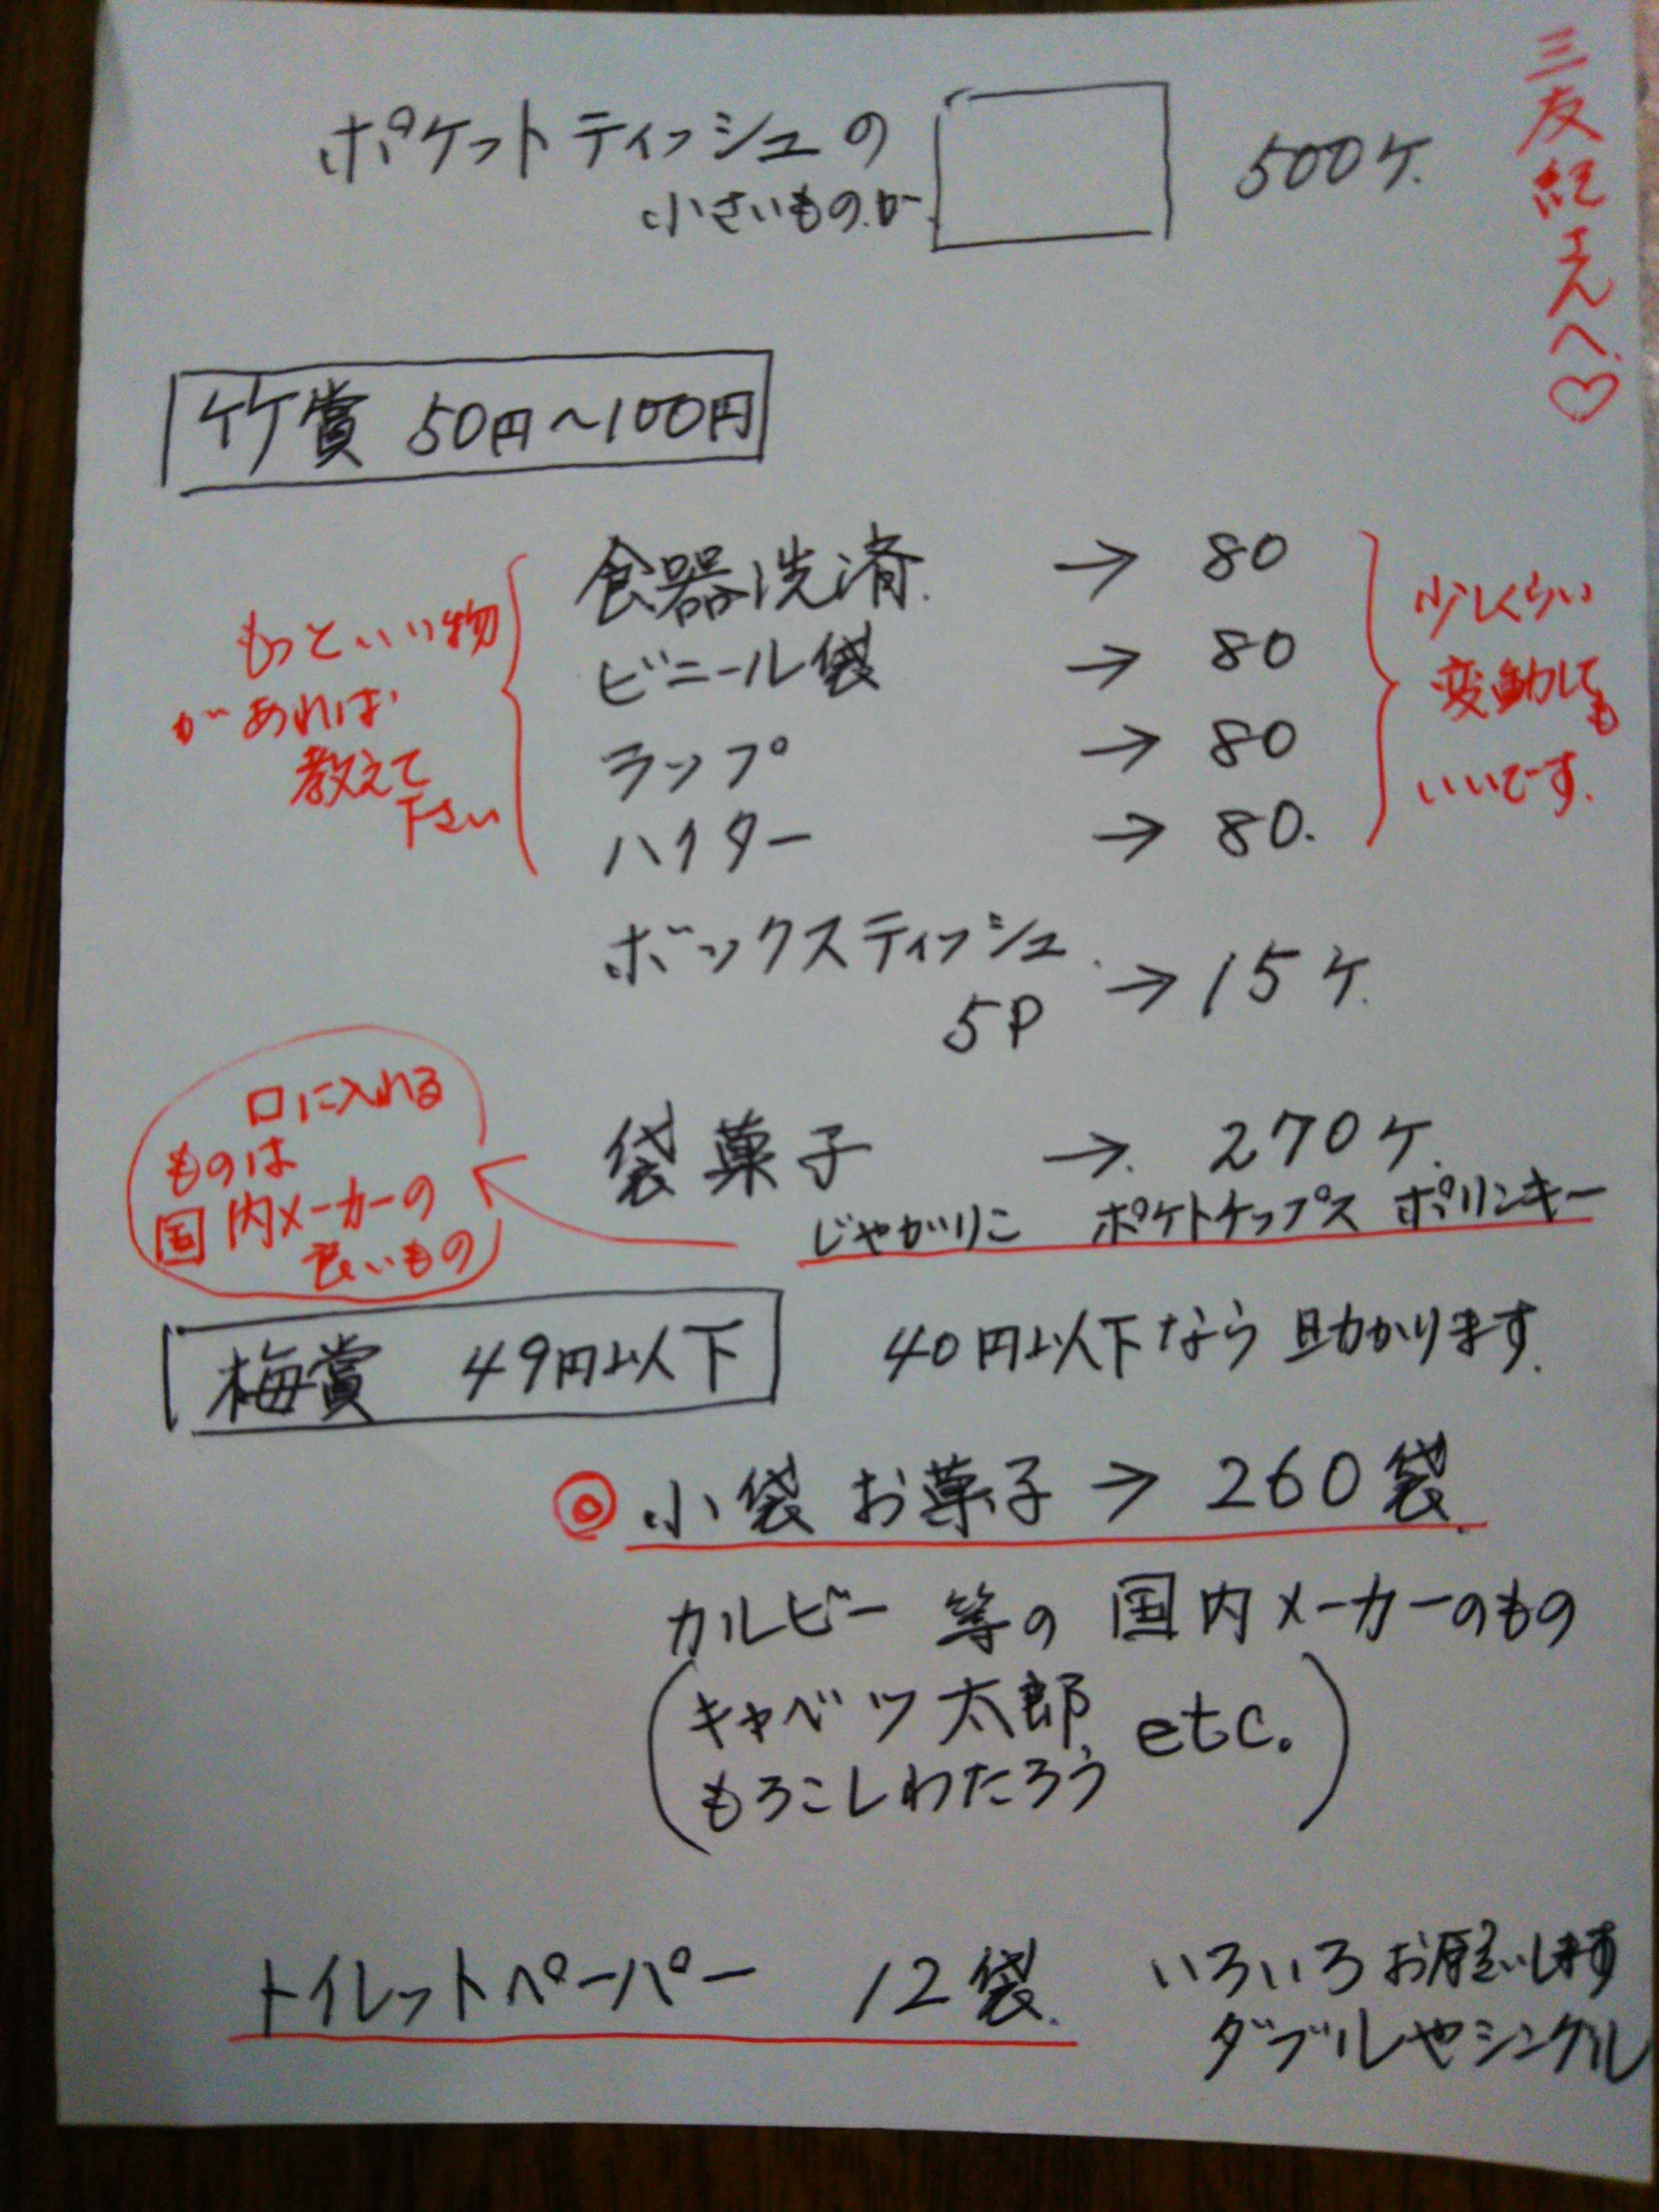 三友紀さんへ♡
ポケットティッシュの
小さいものが
500ケ.
竹賞 50円～100円
食器洗済. → 80
ビニール袋 → 80
ラップ → 80
ハイター → 80.
もっといい物
があれば
教えて
下さい
少しくらい
変動しても
いいです.
ボックスティッシュ.
5P → 15ケ.
袋菓子 → 270ケ.
じゃがりこ ポケトチップス ポリンキー
口に入れる
ものは
国内メーカーの
良いもの
梅賞 49円以下
40円以下なら助かります.
◎小袋お菓子 → 260袋.
カルビー等の国内メーカーのもの
(キャベツ太郎,
もろこしわたろう etc.)
トイレットペーパー 12袋.
いろいろお願いします
ダブルやシングル